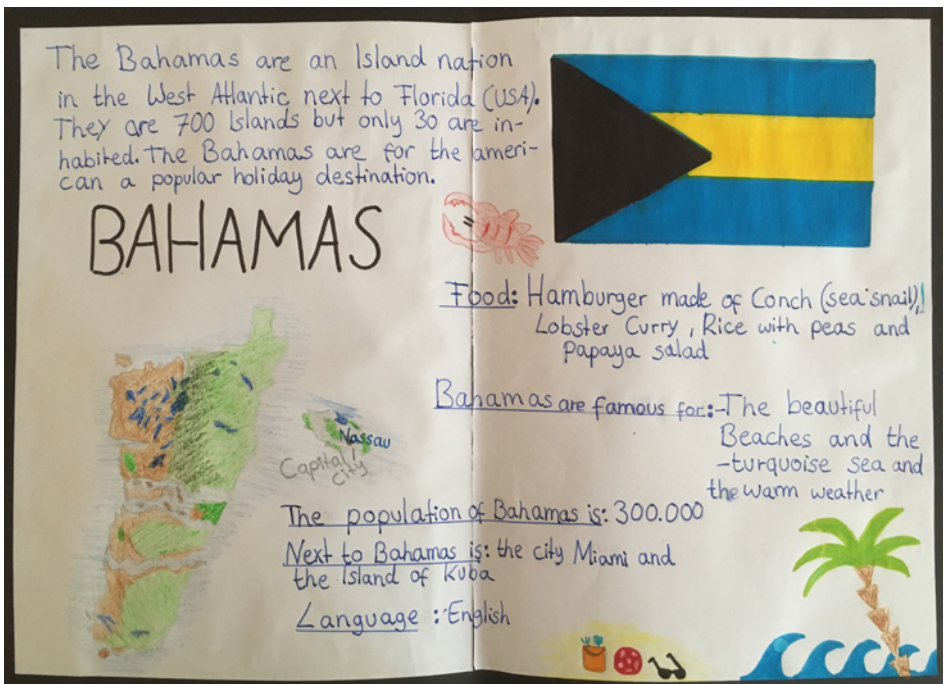 The Bahamas are an Island nation
in the West Atlantic next to Florida (USA).
They are 700 Islands but only 30 are in-
habited. The Bahamas are for the ameri-
can a popular holiday destination.
BAHAMAS
Food: Hamburger made of Conch (sea snail),
Lobster Curry, Rice with peas and
Papaya salad
Bahamas are famous for: -The beautiful
Beaches and the
-turquoise sea and
the warm weather
Nassau
Capital
City
The population of Bahamas is: 300.000
Next to Bahamas is: the city Miami and
the Island of Kuba
Language: English